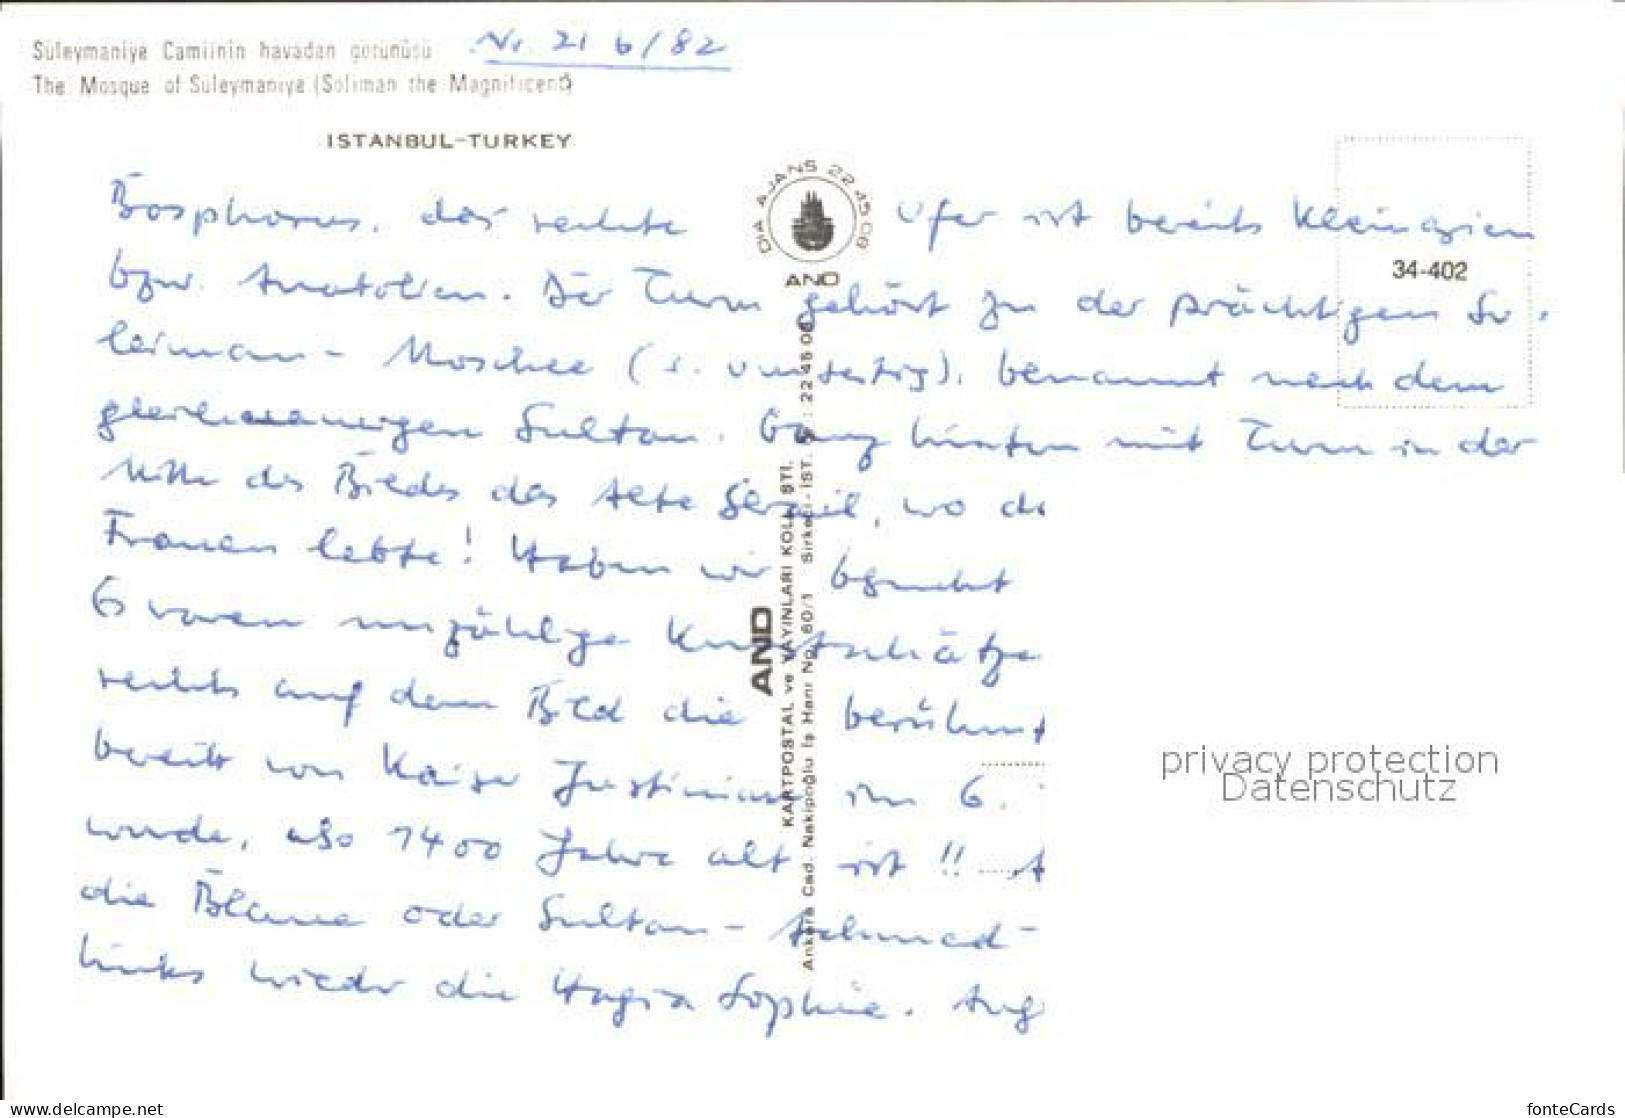 Süleymaniye Camiinin havadan görünüşü
Nr. 21 6/82
The Mosque of Süleymaniye (Soliman the Magnificent)
ISTANBUL-TURKEY
DIA AJANS 22 45 08
AND
34-402
Bosphorus, das rechte Ufer ist bereits Kleinasien
bzw. Anatolien. Der Turm gehört zu der prächtigen Su-
leiman-Moschee (s. umseitig), benannt nach dem
gleichnamigen Sultan. Ganz hinten mit Turm in der
Mitte des Bildes das Alte Serail, wo
Frauen lebte! Haben wir besucht
Es waren unzählige Kunstschätze
rechts auf dem Bild die berühmt
bereits von Kaiser Justinian im 6.
wurde, also 1400 Jahre alt ist!!
die Blaue oder Sultan-Achmed-
links wieder die Hagia Sophie.
AND
KARTPOSTAL ve YAYINLARI KOLL. ŞTİ.
Ankara Cad. Nakipoğlu İş Hanı No. 60/1 Sirkeci-İST. : 22 45 08
privacy protection
Datenschutz
www.delcampe.net
fonteCards